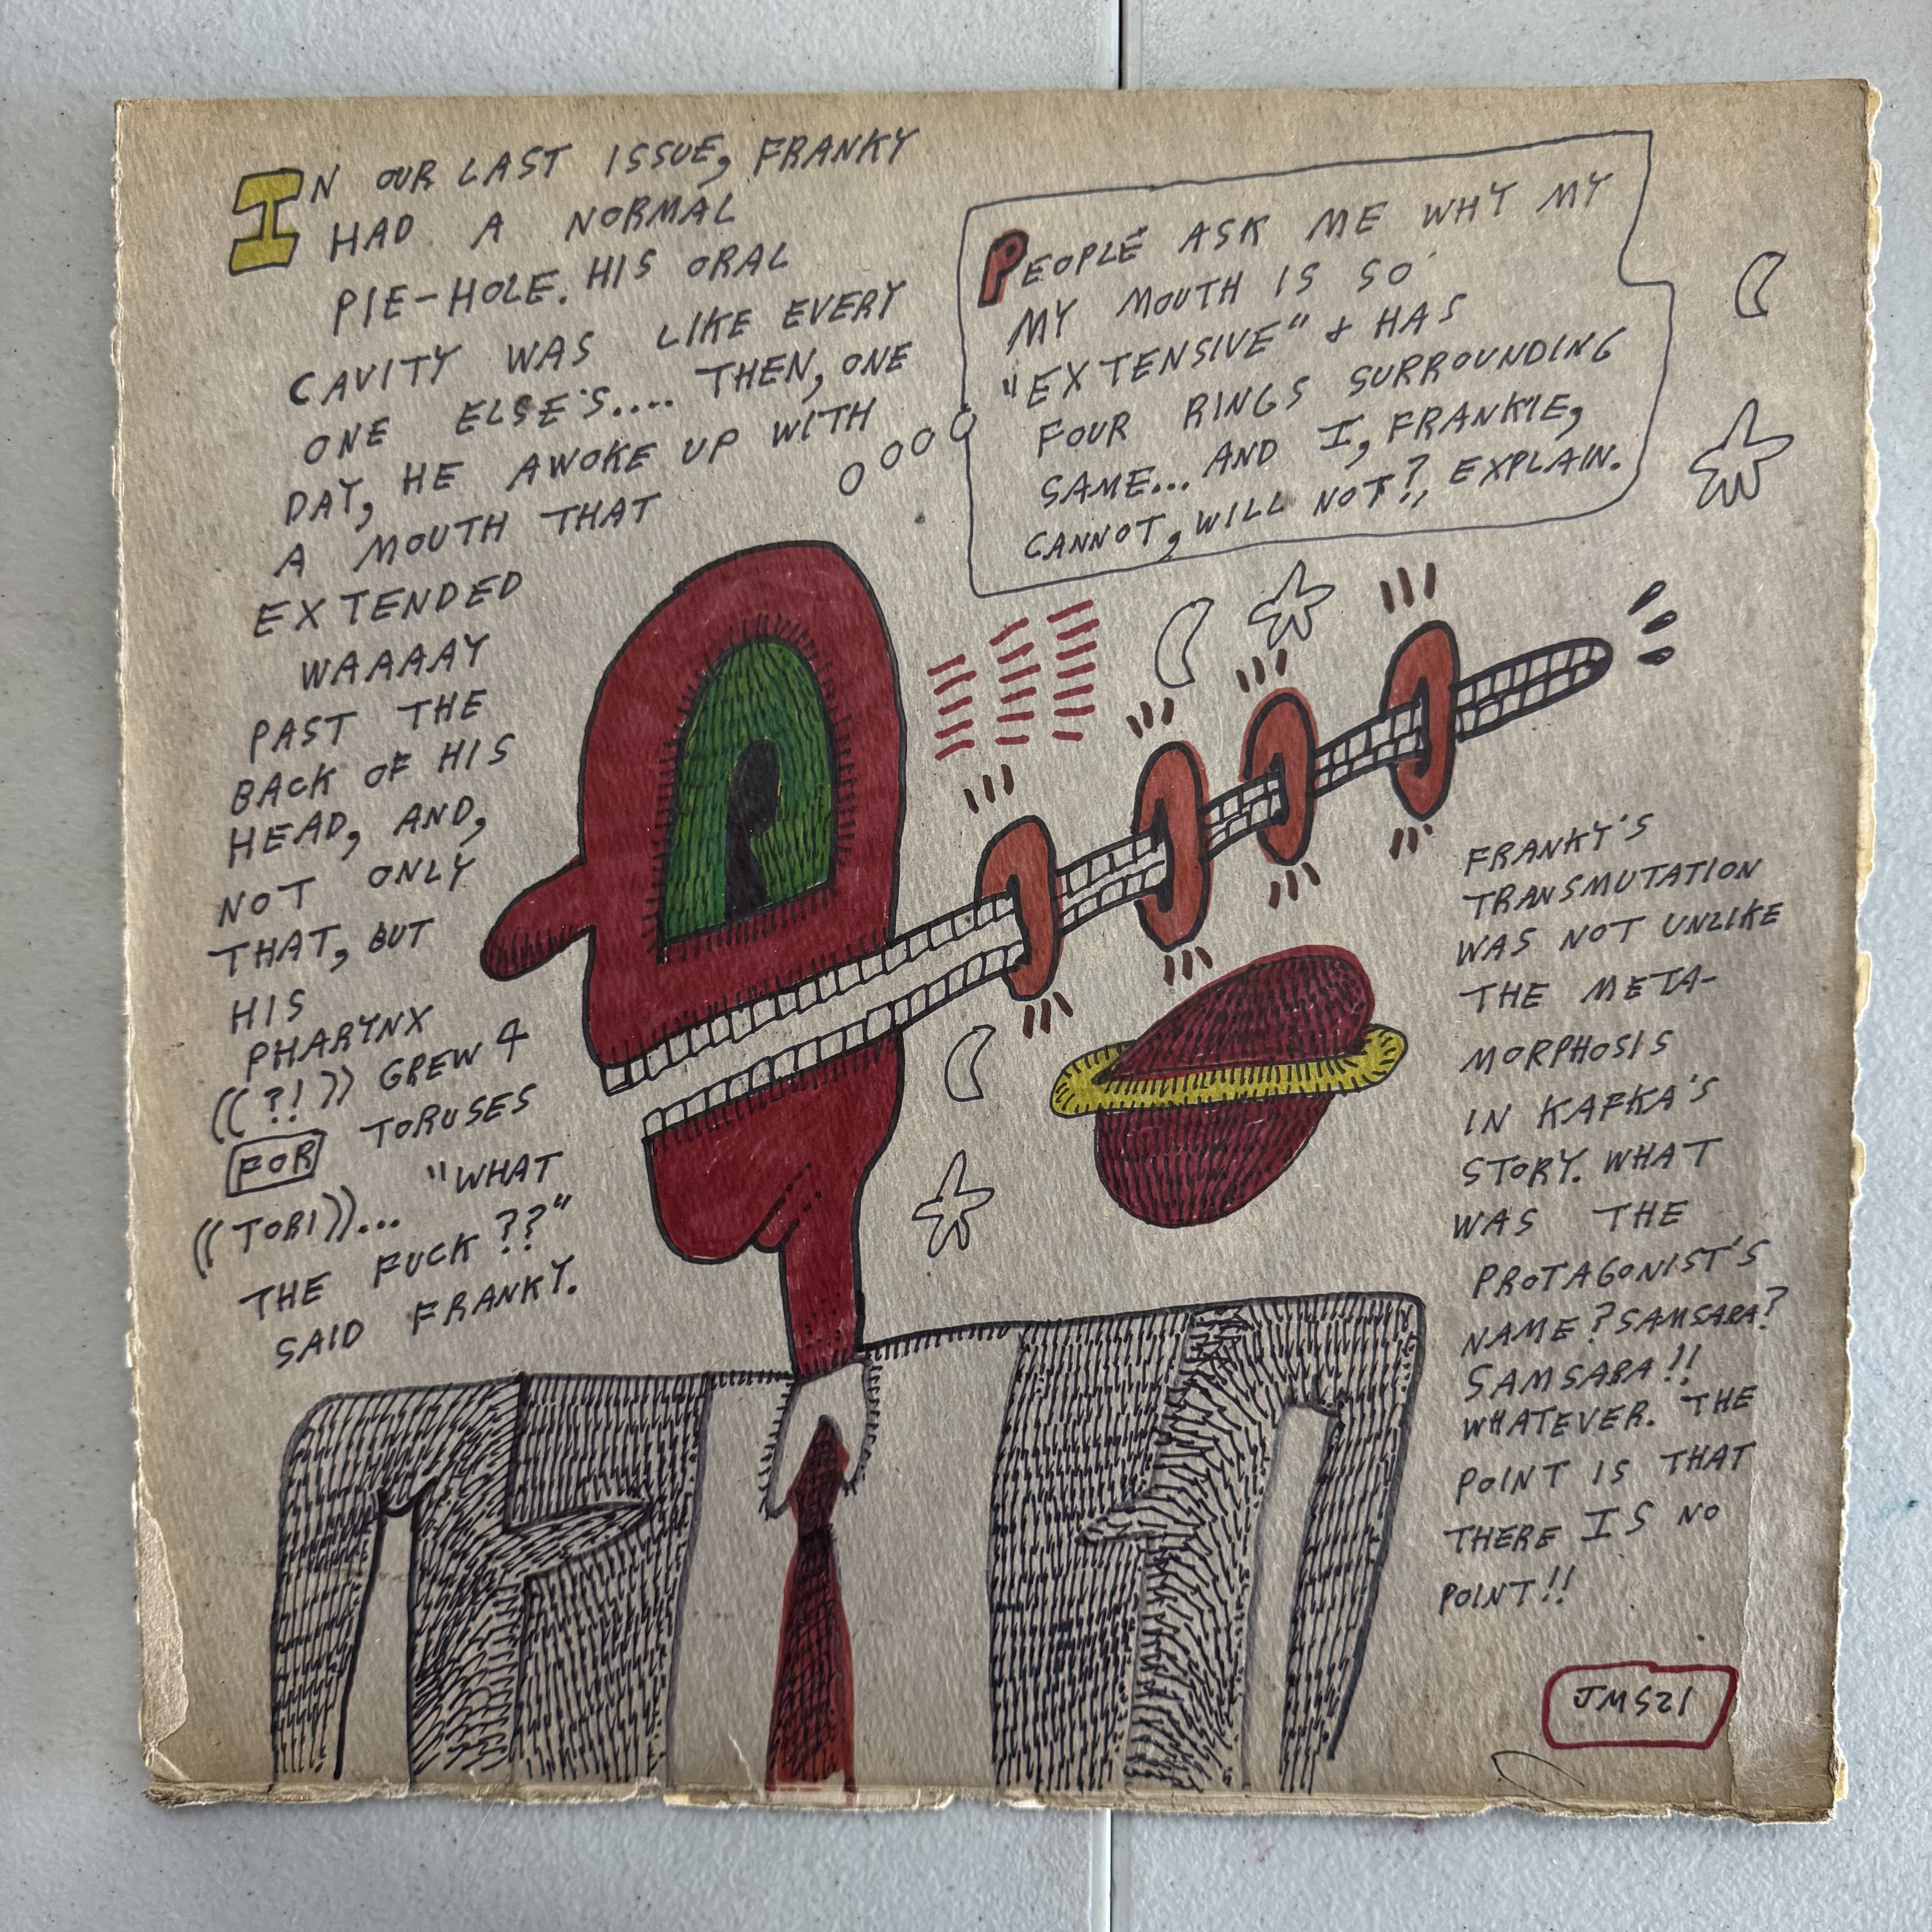 IN OUR LAST ISSUE, FRANKY
HAD A NORMAL
PIE-HOLE. HIS ORAL
CAVITY WAS LIKE EVERY
ONE ELSE'S.... THEN, ONE
DAY, HE AWOKE UP WITH
A MOUTH THAT
EXTENDED
WAAAAY
PAST THE
BACK OF HIS
HEAD, AND,
NOT ONLY
THAT, BUT
HIS
PHARYNX
((?!)) GREW 4
FOR TORUSES
((TORI))... "WHAT
THE FUCK ??"
SAID FRANKY.
PEOPLE ASK ME WHY MY
MY MOUTH IS SO
"EXTENSIVE" & HAS
FOUR RINGS SURROUNDING
SAME... AND I, FRANKIE,
CANNOT, WILL NOT?!, EXPLAIN.
FRANKY'S
TRANSMUTATION
WAS NOT UNLIKE
THE META-
MORPHOSIS
IN KAFKA'S
STORY. WHAT
WAS THE
PROTAGONIST'S
NAME? SAMSARA?
SAMSARA!!
WHATEVER. THE
POINT IS THAT
THERE IS NO
POINT!!
JMS21